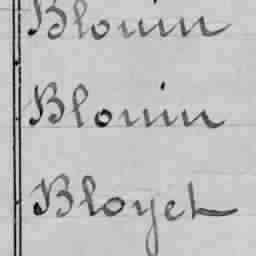 Blouin
Blouin
Bloyet